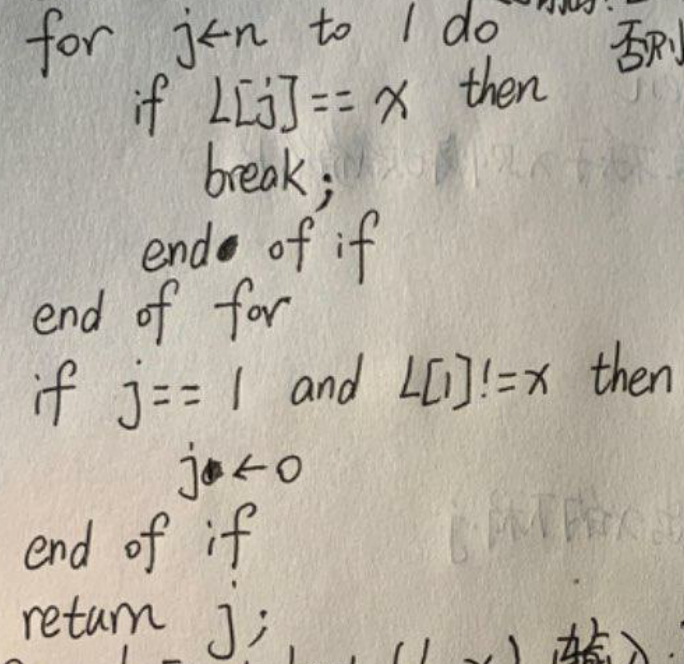 for j←n to 1 do 否则
if L[j]== x then
break;
end of if
end of for
if j== 1 and L[1]!=x then
j←0
end of if
return j;